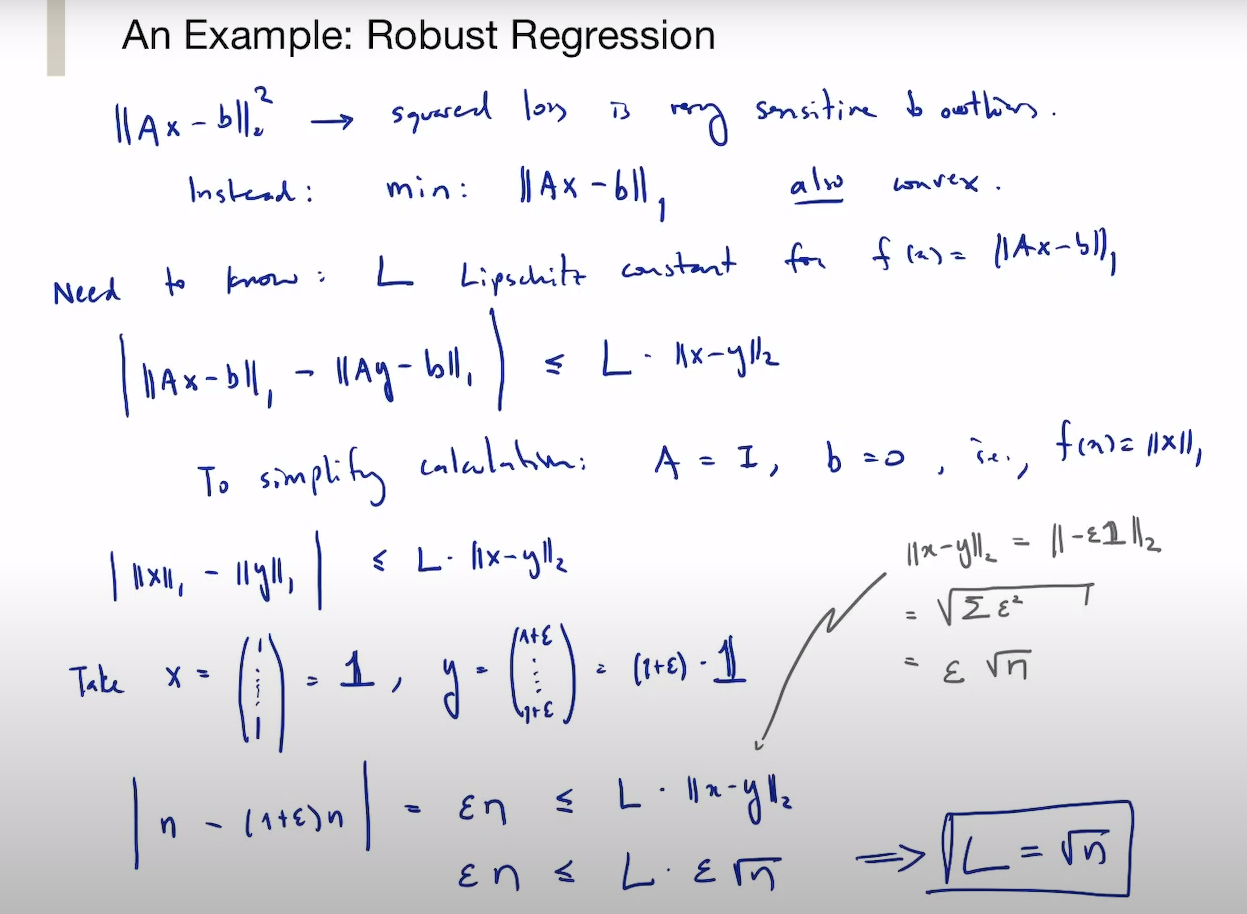 An Example: Robust Regression
||Ax - b||₂² → squared loss is very sensitive to outliers.
Instead: min: ||Ax - b||₁ also convex.
Need to know: L Lipschitz constant for f(x) = ||Ax - b||₁
| ||Ax - b||₁ - ||Ay - b||₁ | ≤ L · ||x - y||₂
To simplify calculation: A = I, b = 0, i.e., f(x) = ||x||₁
| ||x||₁ - ||y||₁ | ≤ L · ||x - y||₂
||x - y||₂ = ||-ε𝟙||₂
= √(Σ ε²)
= ε √n
Take x = (1 ⋮ 1) = 𝟙, y = (1+ε ⋮ 1+ε) = (1+ε) · 𝟙
| n - (1+ε)n | = εn ≤ L · ||x - y||₂
εn ≤ L · ε √n ⟹ L = √n